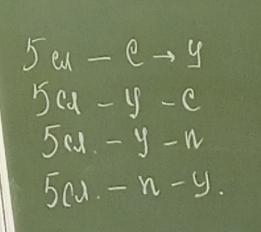 5 сл – с → у
5сл – у – с
5сл. – у – п
5сл. – п – у.